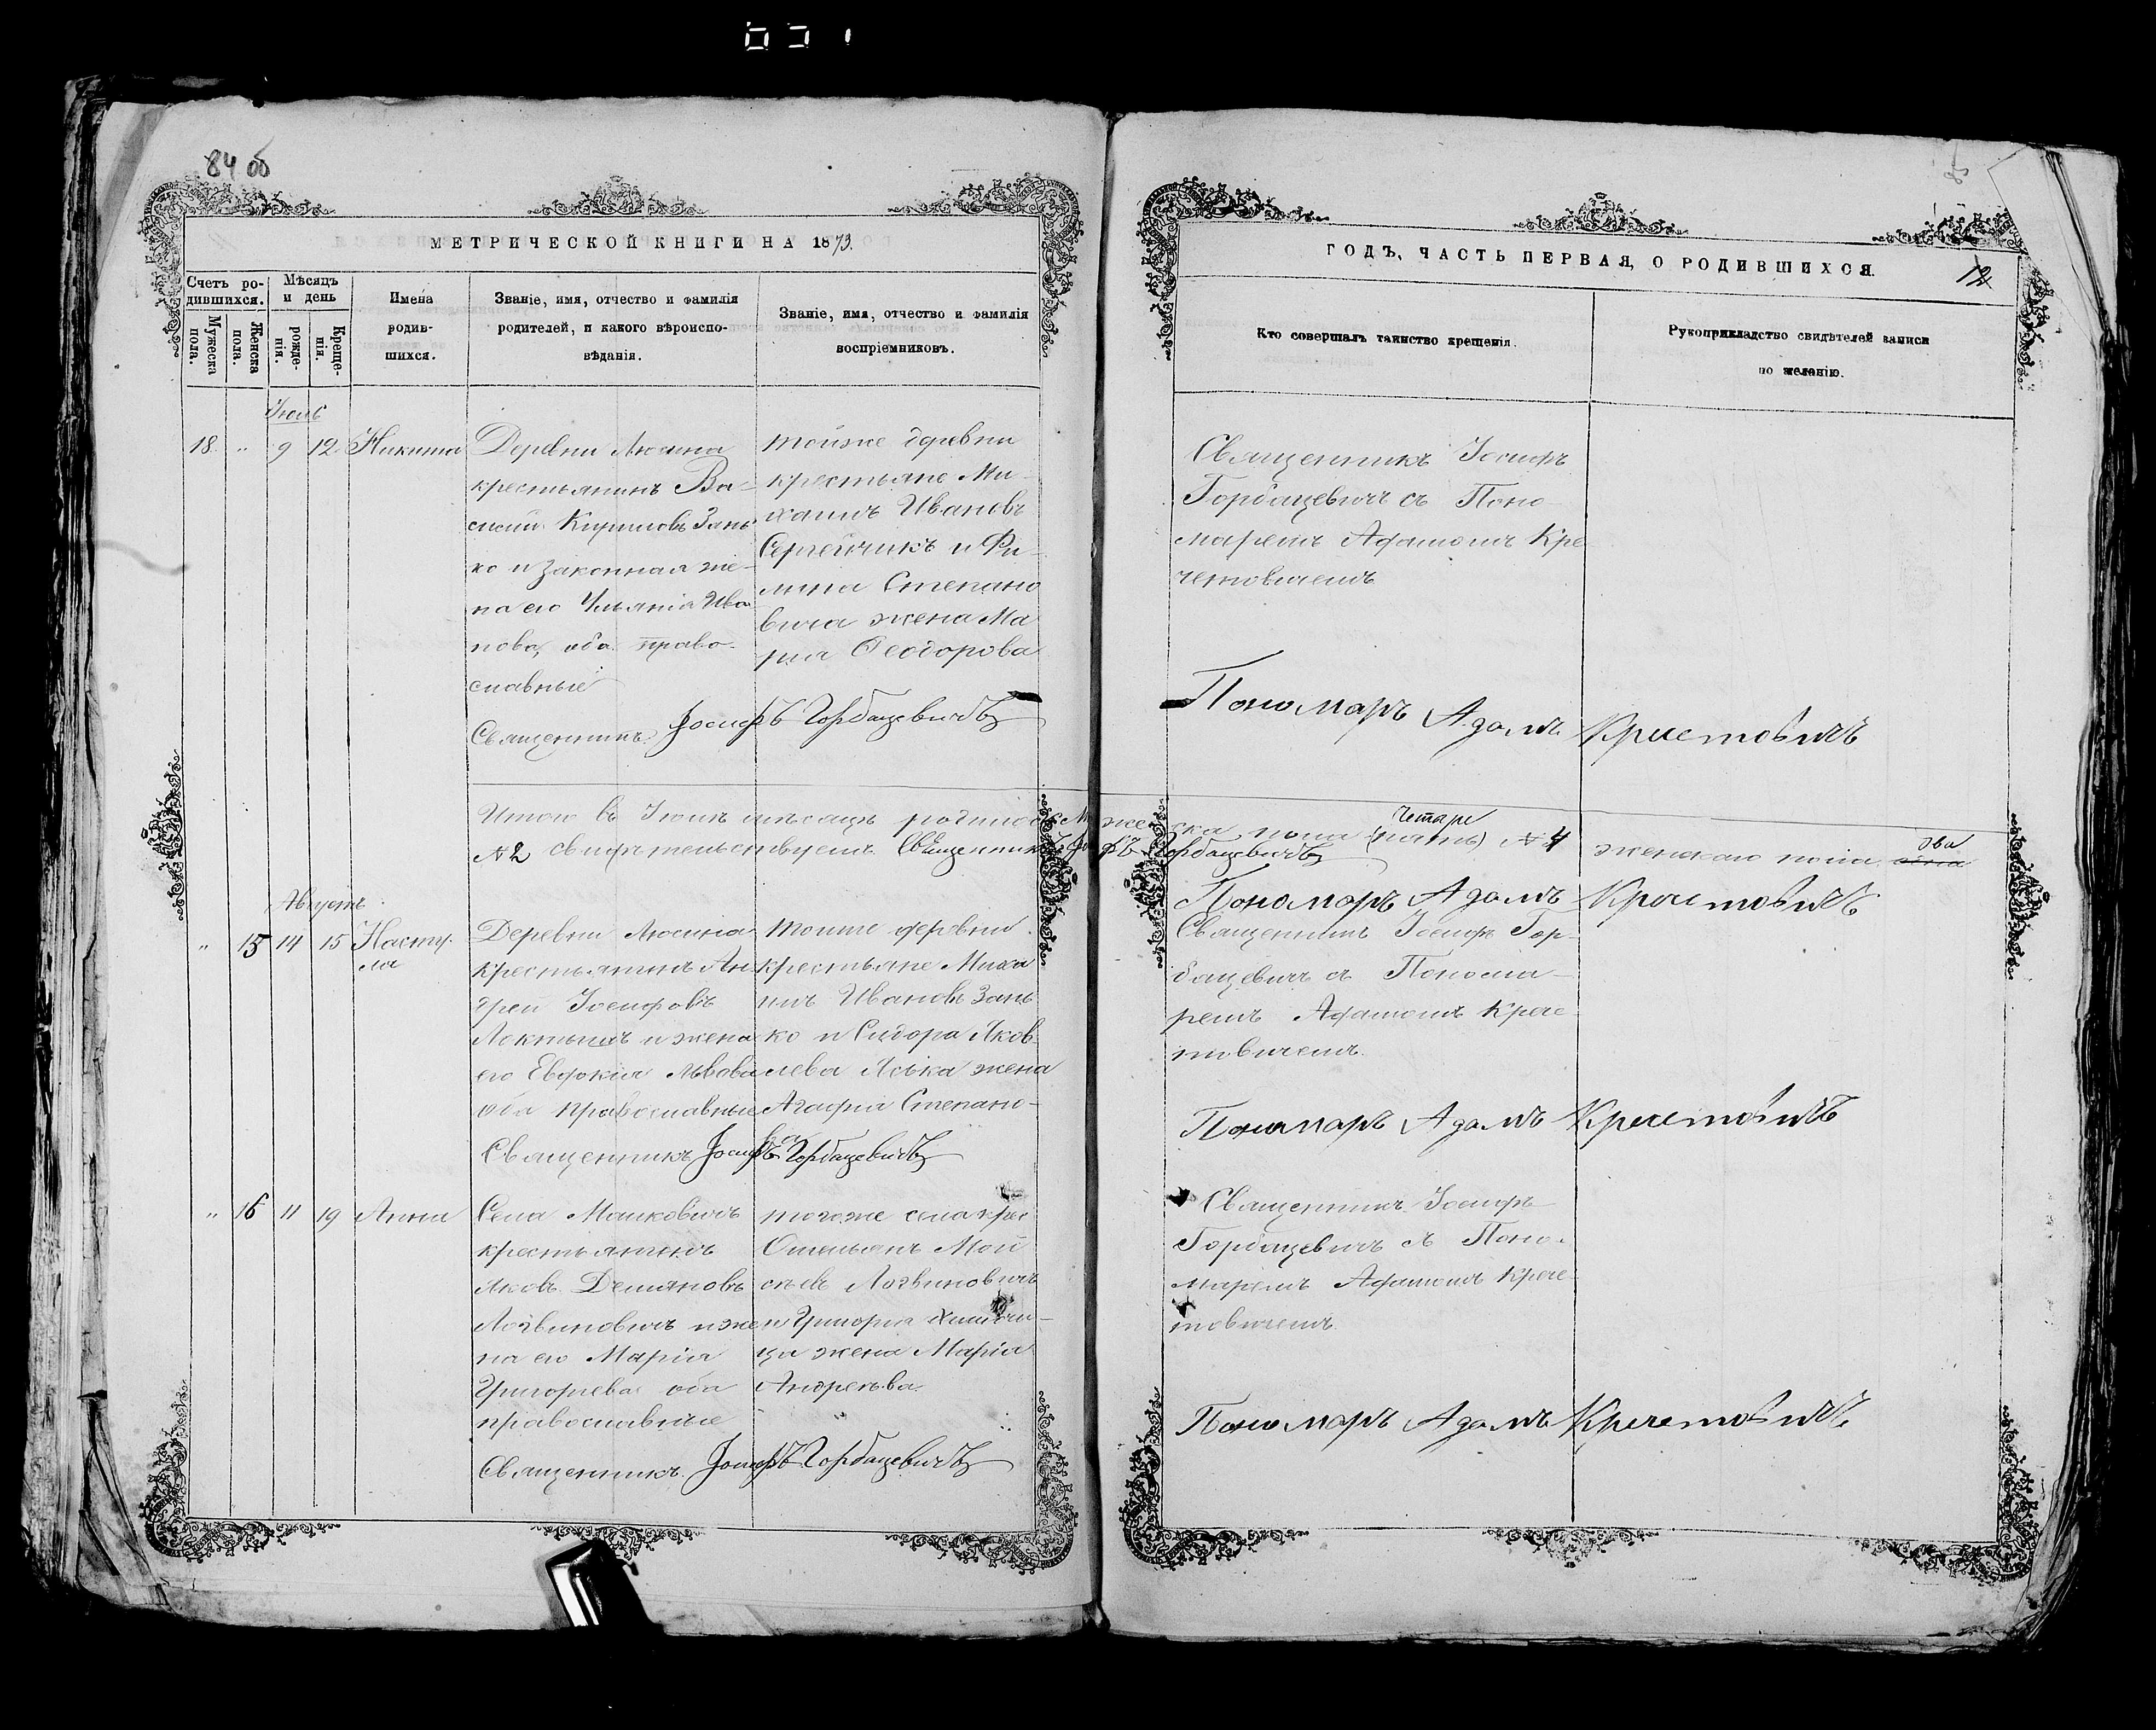 84 об
МЕТРИЧЕСКОЙ КНИГИ НА 1873.
Счетъ ро-
дившихся.
Мужеска пола.
Женска пола.
Мѣсяцъ
и день
рожде-
нія.
Креще-
нія.
Имена
родив-
шихся.
Званіе, имя, отчество и фамилія
родителей, и какого вѣроиспо-
вѣданія.
Званіе, имя, отчество и фамилія
воспріемниковъ.
Іюль
18. " 9 12 Никита
Деревни Люсина
крестьянинъ Ва-
силій Кириловъ Зань
ко и законная же-
на его Ульянія Ива
нова, оба право-
славные
Священникъ Іосифъ Горбацевичъ
тойже деревни
крестьяне Ми-
хаилъ Ивановъ
Сергейчикъ и Фи-
липа Степано
вича жена Ма
рія Ѳеодорова
Итого въ Іюлѣ мѣсяцѣ родилось Мужеска пола (пять) четыре № 4 женскаго пола одна два
№ 2 свидѣтельствуемъ Священникъ Іосифъ Горбацевичъ
Августъ
" 15 14 15 Насту-
ля
Деревни Люсина
крестьянинъ Ан-
дрей Іосифовъ
Локтышъ и жена
его Евдокія Львова
оба православные
Священникъ Іосифъ Горбацевичъ
тоиже деревни
крестьяне Миха
илъ Ивановъ Зань
ко и Сидора Яков-
лева Яська жена
Агафія Степано-
ва
" 16 11 19 Анна
Села Малковичъ
крестьянинъ
Яковъ Демяновъ
Логвиновичъ и же
на его Марія
Григорьева оба
православные
Священникъ Іосифъ Горбацевичъ
тогоже села крес
Омельянъ Мой
сѣевъ Логвиновичъ
и Григорія
ца жена Марія
Андреева.
ГОДЪ, ЧАСТЬ ПЕРВАЯ, О РОДИВШИХСЯ.
12
Кто совершалъ таинство крещенія.
Рукоприкладство свидѣтелей записи
по желанію.
Священникъ Іосифъ
Горбацевичъ съ Поно
маремъ Адамомъ Кре
четовичемъ
Пономаръ Адамъ Кречетовичъ
Пономаръ Адамъ Кречетовичъ
Священникъ Іосифъ Гор-
бацевичъ съ Понома-
ремъ Адамомъ Крече-
товичемъ.
Пономаръ Адамъ Кречетовичъ
Священникъ Іосифъ
Горбацевичъ съ Поно-
маремъ Адамомъ Крече-
товичемъ
Пономаръ Адамъ Кречетовичъ